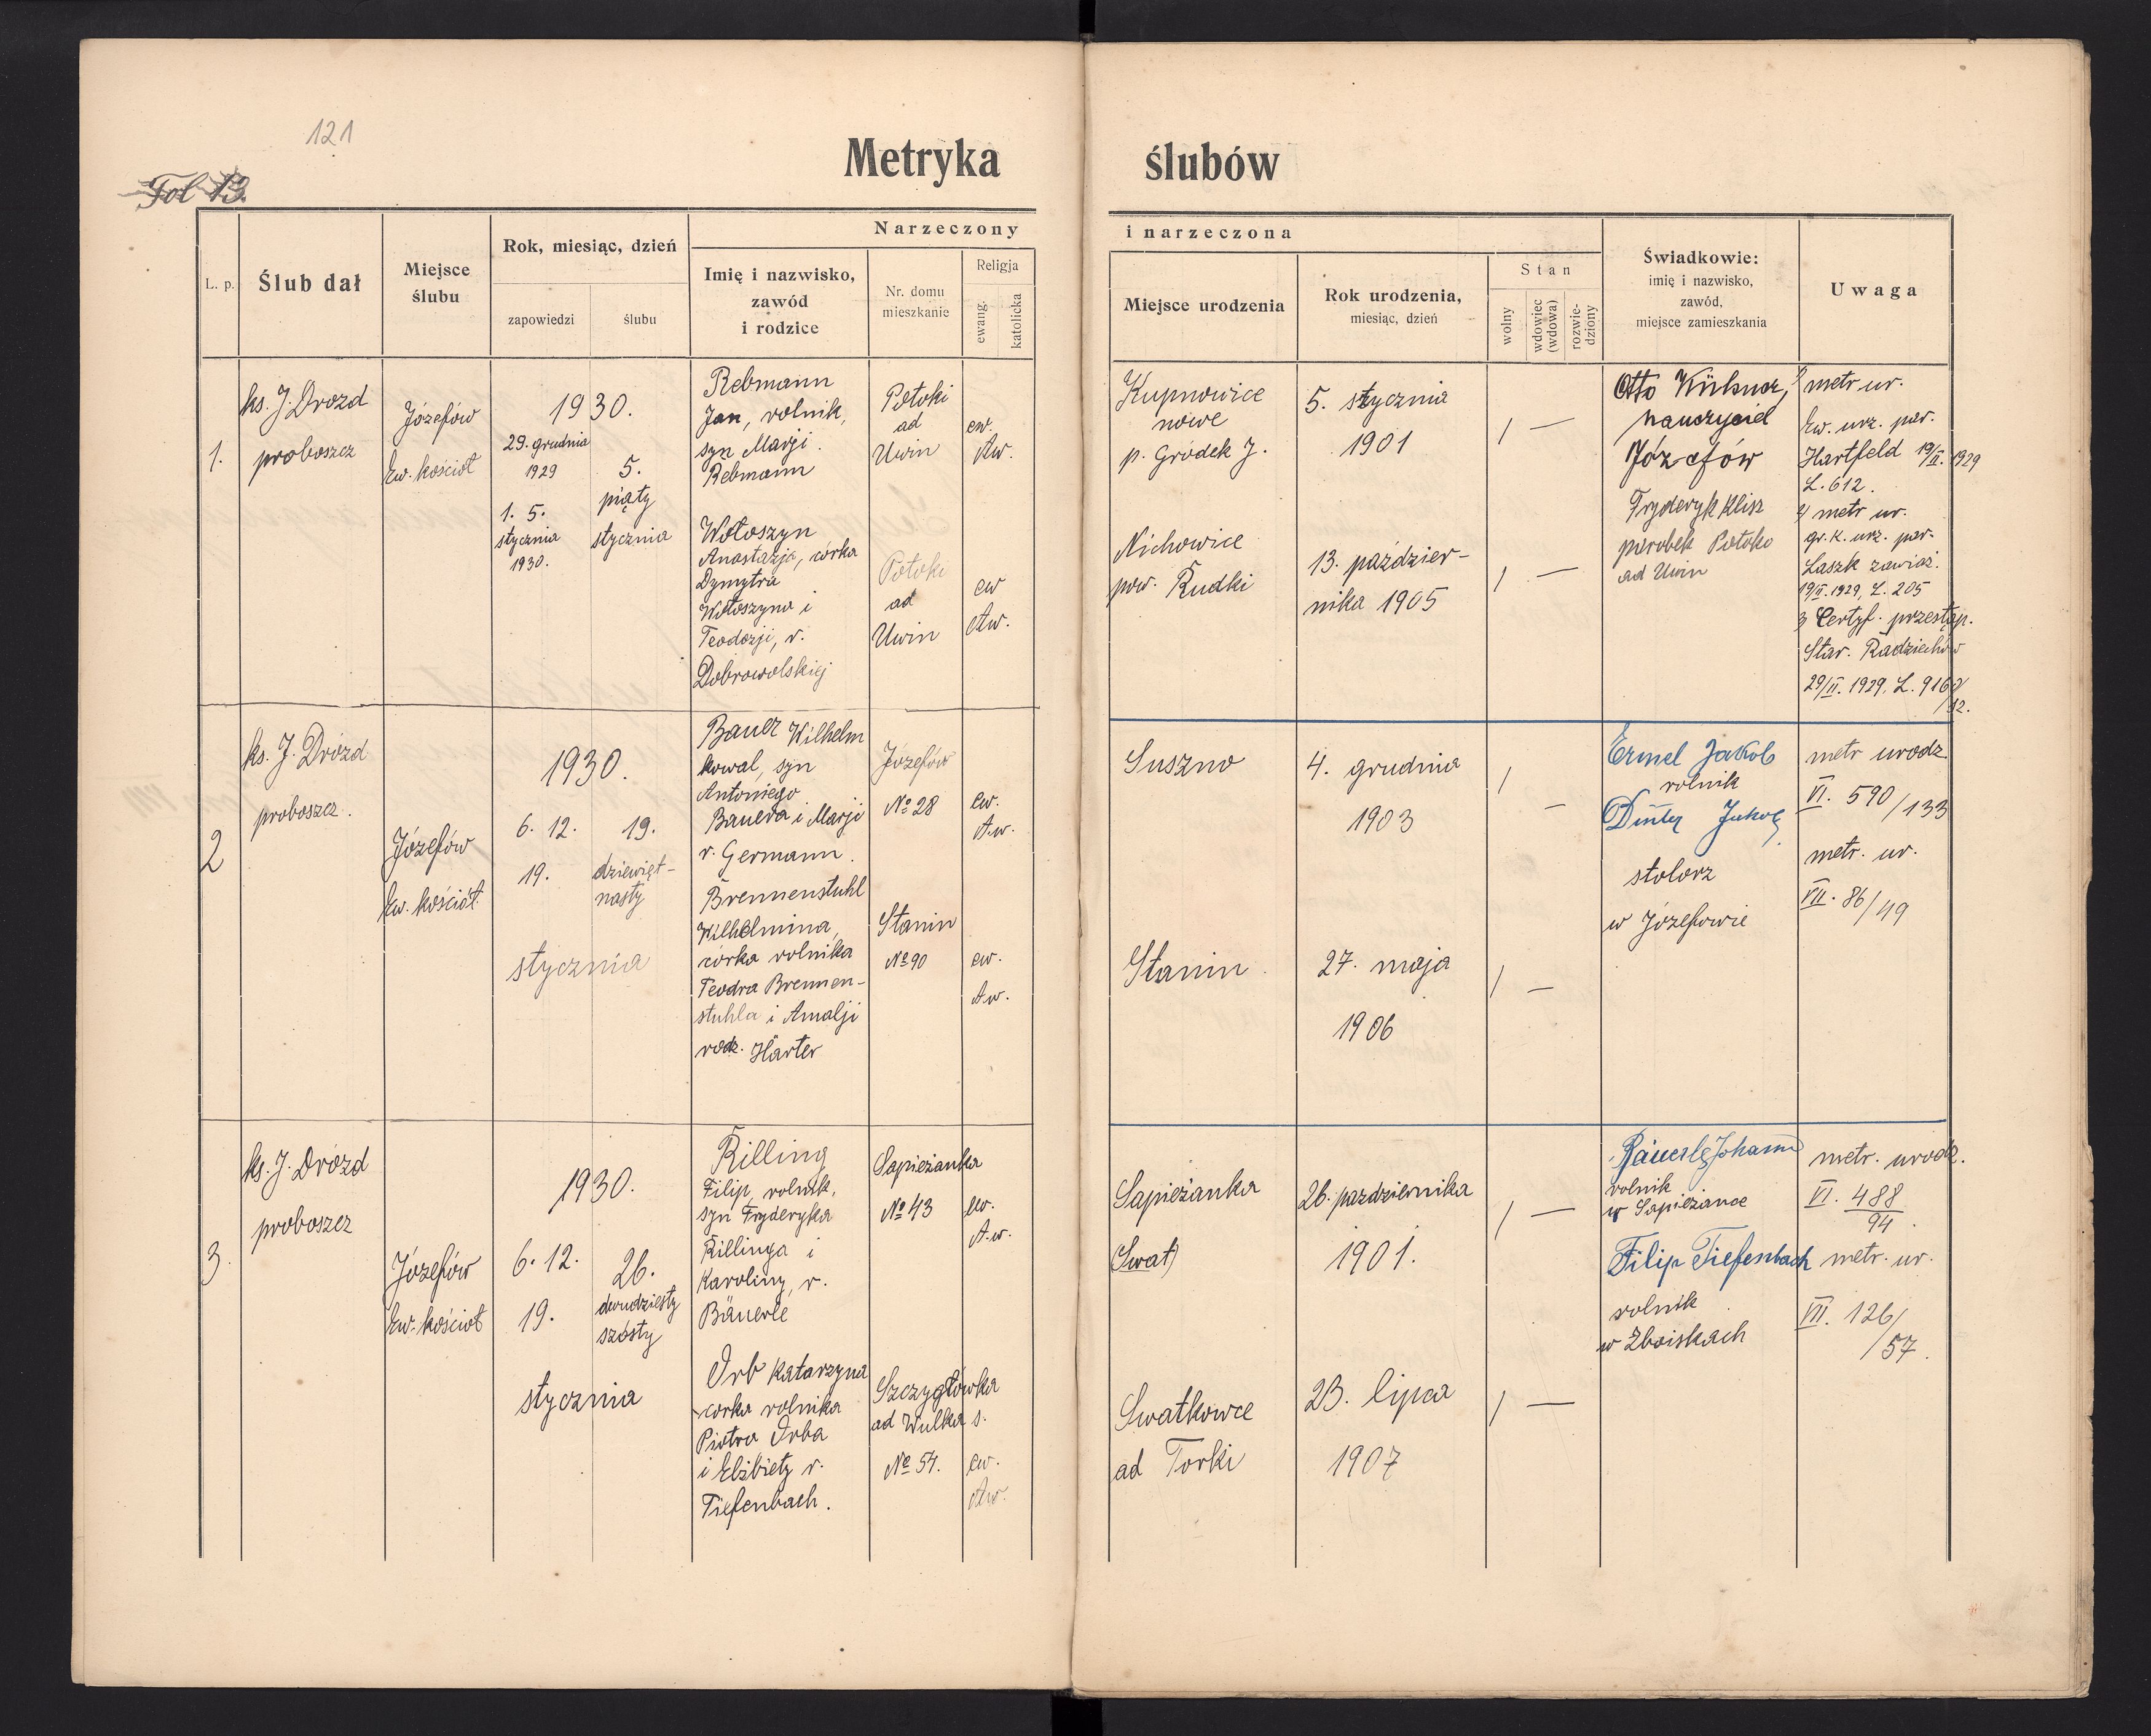 121
Fol 13.
Metryka ślubów
L. p.
Ślub dał
Miejsce
ślubu
Rok, miesiąc, dzień
zapowiedzi
ślubu
Narzeczony
Imię i nazwisko,
zawód
i rodzice
Nr. domu
mieszkanie
Religja
ewang.
katolicka
i narzeczona
Miejsce urodzenia
Rok urodzenia,
miesiąc, dzień
Stan
wolny
wdowiec
(wdowa)
rozwie-
dziony
Świadkowie:
imię i nazwisko,
zawód,
miejsce zamieszkania
Uwaga
1.
ks. J. Drozd
proboszcz
Józefów
Ew. kościoł
1930.
29. grudnia
1929
1. 5.
stycznia
1930.
5.
piąty
stycznia
Rebmann
Jan, rolnik,
syn Marji
Rebmann
Wołoszyn
Anastazja, córka
Dymytra
Wołoszyna i
Teodozji, r.
Dobrowolskiej
Potoki
ad
Uwin
ew.
Aw.
Potoki
ad
Uwin
ew
Aw.
Kupnowice
nowe
p. Gródek J.
5. stycznia
1901
/ —
Nichowice
pow. Rudki
13. paździer-
nika 1905
/ —
Otto
nauczyciel
Józefów
Fryderyk Klisz
parobek Potoko
ad Uwin
metr ur.
Ew. urz. par.
Hartfeld 19/II. 1929
L. 612.
metr ur.
gr. k. urz. par.
Laszk zawiąz.
19/II. 1929, L. 205
3 Certyf. przestąp.
Star. Radziechów
29/II. 1929. L. 9160/
12.
2
ks. J. Drozd
proboszcz.
Józefów
Ew. kościół.
1930.
6. 12.
19.
19.
dziewięt-
nasty
stycznia
Bauer Wilhelm
kowal, syn
Antoniego
Bauera i Marji
r. Germann.
Brennenstuhl
Wilhelmina,
córka rolnika
Teodra Brennen-
stuhla i Amalji
rodz. Härter
Józefów
No 28
ew.
Aw.
Stanin
No 90
ew.
Aw.
Suszno
4. grudnia
1903
/ —
Stanin
27. maja
1906
/ —
Ermel Jakob
rolnik
Jakob
stolarz
w Józefowie
metr urodz
VI. 590/133
metr. ur.
VII. 86/49
3
ks. J. Drozd
proboszcz
Józefów
Ew. kościoł
1930.
6. 12.
19.
26.
dwudziesty
szósty
stycznia
Rilling
Filip, rolnik,
syn Fryderyka
Rillinga i
Karoliny, r.
Bäuerle
Orb Katarzyna
corka rolnika
Piotra Orba
i Elżbiety r.
Tiefenbach.
Sapieżanka
No 43
ew.
A.w.
Szczygłówka
ad Wulka s.
No 54.
ew.
Aw.
Sapieżanka
(Swat)
26. pazdziernika
1901.
/ —
Swatkowce
ad Torki
23. lipca
1907
/ —
Bäuerle Johann
rolnik
w Sapieżance
Filip Tiefenbach
rolnik
w Zboiskach
metr. urodz.
VI. 488
94.
metr. ur.
VII. 126/
57.